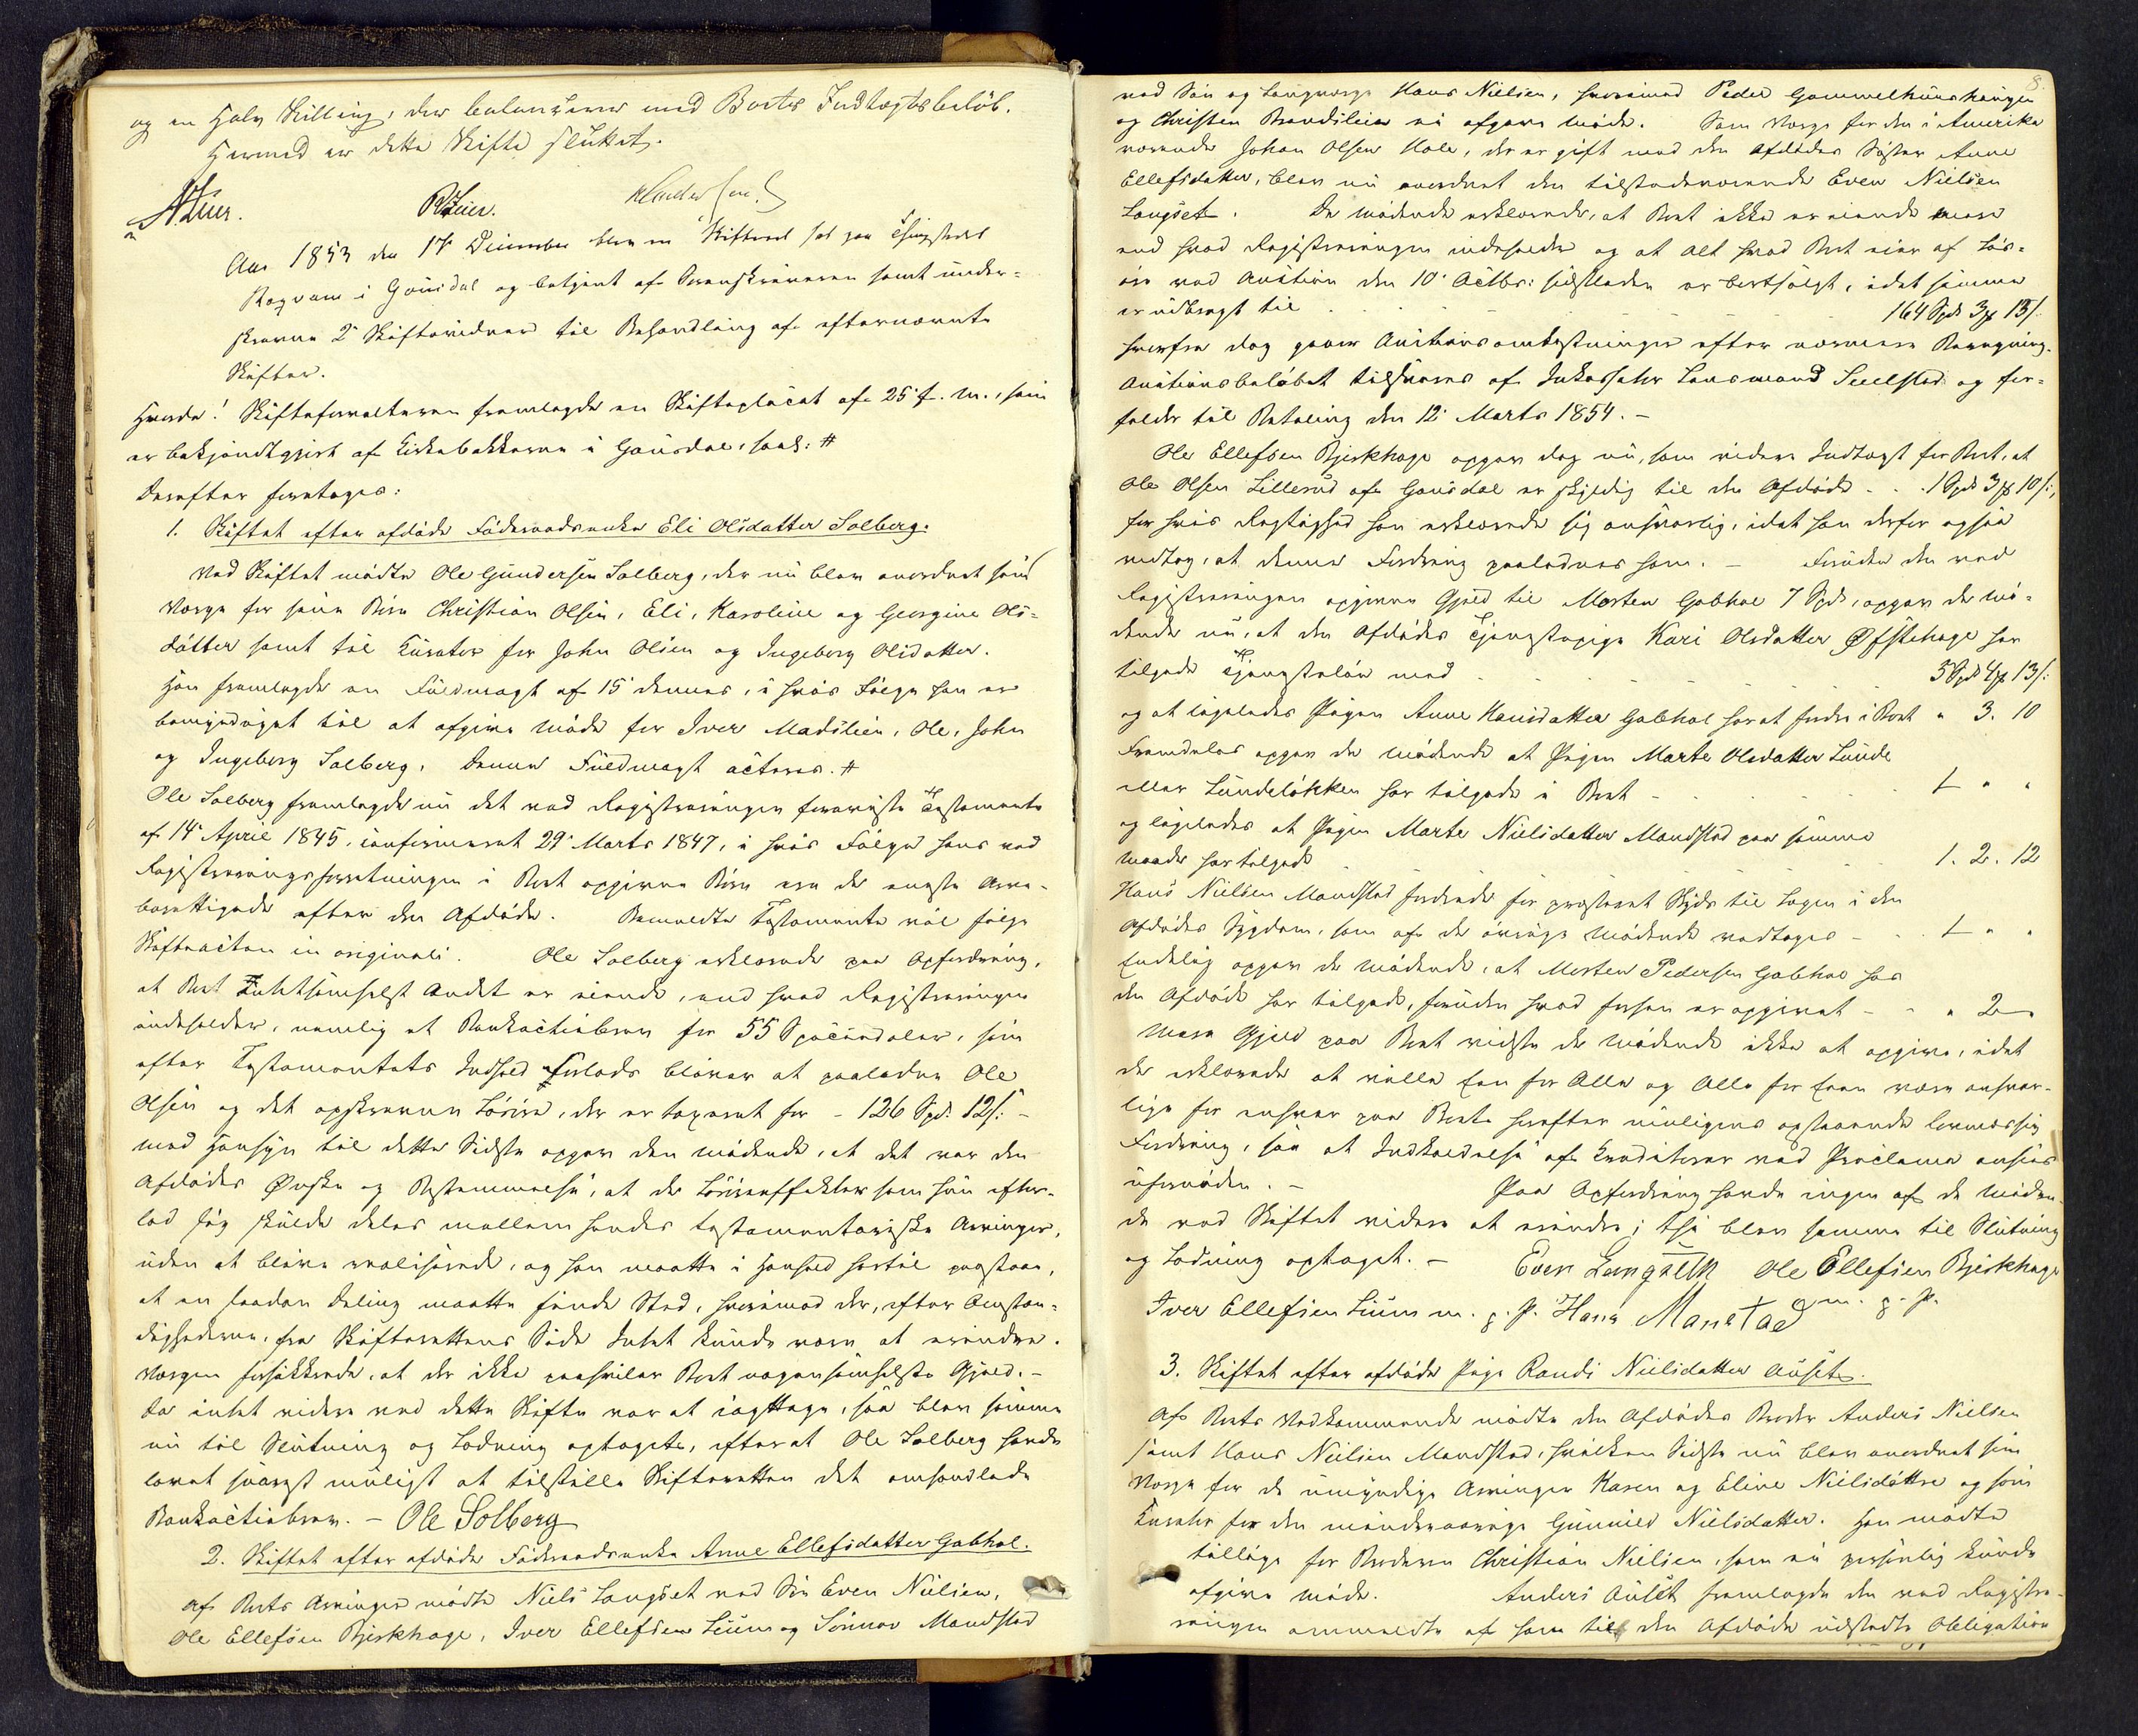 og en Halv Skilling, der balancerer med Boets Indtægtsbeløb.
Hermed er dette Skifte sluttet.
Aar 1853 den 17 December blev en Skifteret sat paa Thingstedet
Rogvam i Gausdal og betjent af Sorenskriveren samt under-
skrevne 2de Skiftevidner til Behandling af efternævnte
Skifter.
Hvorda! Skifteforvalteren fremlagde en Skifteplacat af 25 f. M., som
er bekjendtgjort af Kirkebakkerne i Gausdal, saal: #
Derefter foretoges:
1. Skiftet efter afdøde Føderaadsenke Eli Olsdatter Solberg.
Ved Skiftet mødte Ole Gundersen Solberg, der nu blev anordnet som
Værge for sine Børn Christian Olsen, Eli, Karoline og Georgine Ols-
døttre samt til Curator for John Olsen og Ingeborg Olsdatter.
Han fremlagde en Fuldmagt af 15 dennes, i hvis Følge han er
bemyndiget til at afgive Møde for Iver Madslien, Ole, John
og Ingeborg Solberg. Denne Fuldmagt acteres. #
Ole Solberg fremlagde nu det ved Registreringen foreviste Testamente
af 14 April 1845, confirmeret 29 Marts 1847, i hvis Følge hans ved
Registreringsforretningen i Boet opgivne Børn ere de eneste Arve-
berettigede efter den Afdøde. Bemeldte Testamente vil følge
Skifteacten in originali. Ole Solberg erklærede paa Opfordring,
at Boet Intetsomhelst Andet er eiende, end hvad Registreringen
indeholder, nemlig et Bankactiebrev for 55 Speciedaler, som
efter Testamentets Indhold forlods bliver at paalodne Ole
Olsen og det opskrevne Løsøre, der er taxeret for - 126 Spd. 12 s: -
Med Hensyn til dette Sidste opgav den mødende, at det var den
Afdødes Ønske og Bestemmelse, at de Løsøreeffekter som hun efter-
lod sig skulde deles mellem hendes testamentariske Arvinger,
uden at blive realiserede, og han maatte i Henhold hertil paastaa,
at en saadan Deling maatte finde Sted, hvorimod der, efter Omstæn-
dighederne, fra Skifterettens Side Intet kunde være at erindre.
Værgen forsikkrede, at der ikke paahviler Boet nogensomhelst Gjæld. -
Da intet videre ved dette Skifte var at iagttage, saa blev samme
nu til Slutning og Lodning optaget, efterat Ole Solberg havde
lovet snarest muligst at tilstille Skifteretten det omhandlede
Bankactiebrev. - Ole Solberg
2. Skiftet efter afdøde Føderaadsenke Anne Ellefsdatter Gabhol.
Af Boets Arvinger mødte Niels Langset ved Søn Even Nielsen,
Ole Ellefsen Bjerkhage, Iver Ellefsen Liium og Sønnov Mandstad
8.
ved Søn og Laugværge Hans Nielsen, hvorimod Peder Gammelhuushaugen
og Christen Brandslien ei afgave Møde. Som Værge for den i Amerika
værende Johan Olsen Hole, der er gift med den Afdødes Søster Anne
Ellefsdatter, blev nu anordnet den tilstedeværende Even Nielsen
Langset. De mødende erklærede, at Boet ikke er eiende mere
end hvad Registreringen indeholder og at Alt hvad Boet eier af Løs-
øre ved Auction den 10 Octbr: sidstleden er bortsolgt, idet samme
er udbragt til . . . 164 Spd 3 # 15 s.
hvorfra dog gaaer Auctionsomkostninger efter nærmere Beregning.
Auctionsbeløbet tilsvares af Inkassator Lensmand Suulstad og for-
falder til Betaling den 12 Marts 1854. -
Ole Ellefsen Bjerkhage opgav dog nu, som videre Indtægt for Boet, at
Ole Olsen Lillerud af Gausdal er skyldig til den Afdøde . . 1 Spd 3 # 10 s:,
for hvis Rigtighed han erklærede sig ansvarlig, idet han derfor ogsaa
vedtog, at denne Fordring paalodnes ham. - Foruden den ved
Registreringen opgivne Gjæld til Morten Gabhol 7 Spd, opgav de mø-
dende nu, at den Afdødes Tjenestepige Kari Olsdatter Øfstehage har
tilgode Tjenesteløn med . . . 3 Spd 4 # 13 s:
og at ligeledes Pigen Anne Hansdatter Gabhol har at fordre i Boet " 3. 10
Fremdeles opgav de mødende at Pigen Marte Olsdatter Lunde
eller Lundeløkken har tilgode i Boet - . . . 1 " "
og ligeledes at Pigen Marte Nielsdatter Mandstad paa samme
Maade har tilgode . . . 1. 2. 12
Hans Nielsen Mandstad fordrede for præsteret Skyds til Lægen i den
Afdødes Sygdom, som af de øvrige Mødende vedtoges - . . 1 " "
Endelig opgav de Mødende, at Morten Pedersen Gabhol hos
den Afdøde har tilgode, foruden hvad forhen er opgivet - . " 2 "
Mere Gjæld paa Boet vidste de Mødende ikke at opgive, idet
de erklærede at ville Een for Alle og Alle for Een være ansvar-
lige for enhver paa Boet herefter muligens opstaaende lovmæssig
Fordring, saa at Indkaldelse af Creditorer ved Proclama ansees
ufornøden. - Paa Opfordring havde ingen af de Møden-
de ved Skiftet videre at erindre; thi blev samme til Slutning
og Lodning optaget. - Even Langseth Ole Ellefsen Bjerkhage
Iver Ellefsen Liium m. p. P. Hans Manstad m. p. P.
3. Skiftet efter afdøde Pige Randi Nielsdatter Aulset.
Af Boets Vedkommende mødte den Afdødes Broder Anders Nielsen
samt Hans Nielsen Mandstad, hvilken Sidste nu blev anordnet som
Værge for de umyndige Arvinger Karen og Eline Nielsdøttre og som
Curator for den mindreaarige Gunnild Nielsdatter. Han mødte
tillige for Broderen Christian Nielsen, som ei personlig kunde
afgive Møde. Anders Aulset fremlagde den ved Registre-
ringen ommeldte af ham til den Afdøde udstedte Obligation